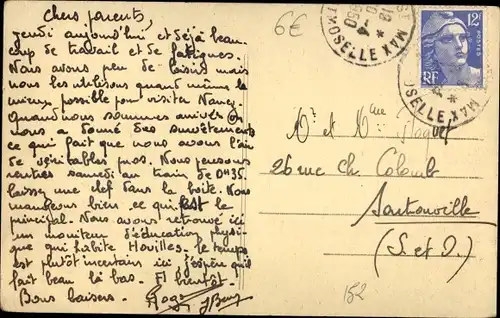 Chers parents,
jeudi aujourd'hui et déjà beau-
coup de travail et de fatigues.
Nous avons peu de loisirs mais
nous les utilisons quand même le
mieux possible pour visiter Nancy.
Quand nous sommes arrivés on
nous a donné des survêtements
ce qui fait que nous avons l'air
de véritables pros. Nous pensons
rentrer samedi au train de 0H35.
laissez une clef dans la boite. Nous
mangeons bien ce qui est le
principal. Nous avons retrouvé ici
un moniteur d'éducation physi-
que qui habite Houilles. le temps
est plutôt incertain ici j'espère qu'il
fait beau là bas. A bientôt.
Bons baisers.
6€
MAX
MOSELLE
12
1950
12F
POSTES
RF
OSELLE
MAX
Mr et Mme
26 rue Ch. Colomb
Sartrouville
(S. et O.)
152